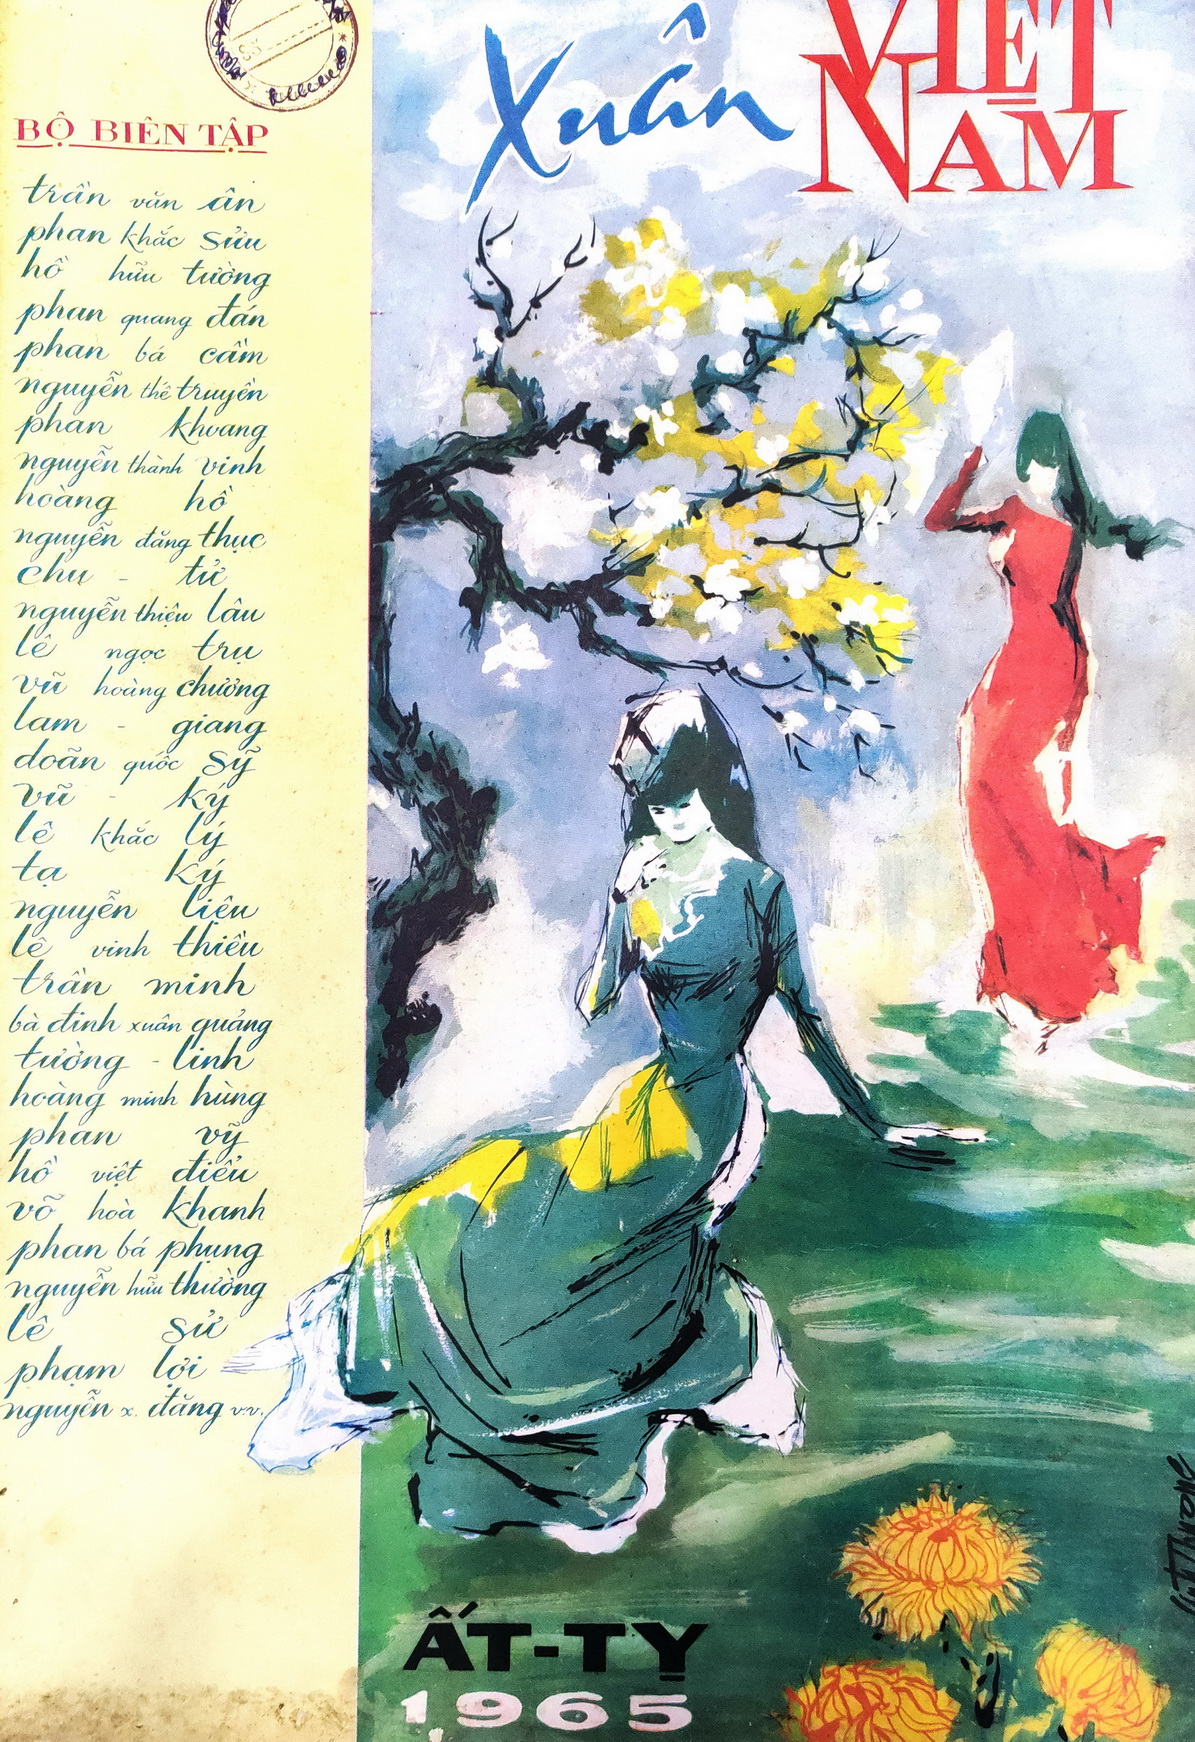 Xuân VIỆT NAM
BỘ BIÊN TẬP
trần văn ân
phan khắc sửu
hồ hữu tường
phan quang đán
phan bá cầm
nguyễn thế truyền
phan khoang
nguyễn thành vinh
hoàng hồ
nguyễn đăng thục
chu - tử
nguyễn thiệu lâu
lê ngọc trụ
vũ hoàng chương
lam - giang
doãn quốc sỹ
vũ - ký
lê khắc lý
tạ ký
nguyễn liệu
lê vinh thiều
trần minh
bà đinh xuân quảng
tường - linh
hoàng minh hùng
phan vỹ
hồ việt điểu
võ hoà khanh
phan bá phụng
nguyễn hữu thường
lê sử
phạm lợi
nguyễn x. đăng v.v.
ẤT-TỴ
1965